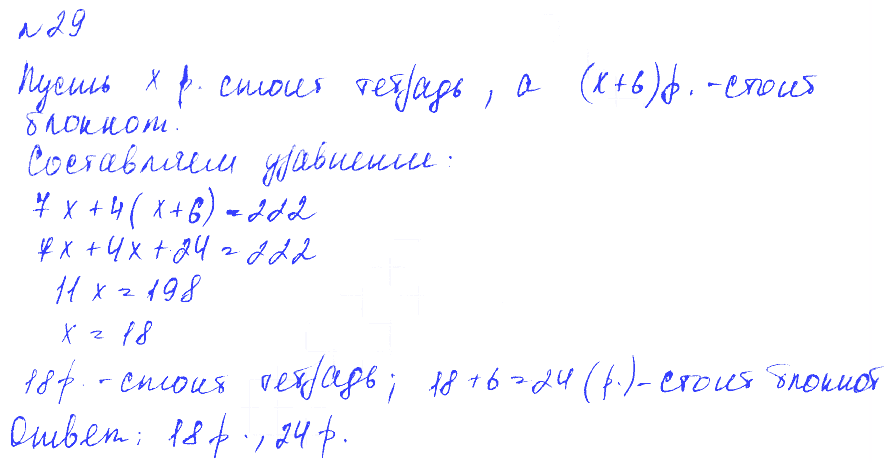 №29
Пусть x р. стоит тетрадь, а (x+6)р. - стоит
блокнот.
Составляем уравнение:
7x+4(x+6)=222
7x+4x+24=222
11x=198
x=18
18р. - стоит тетрадь; 18+6=24(р.) - стоит блокнот
Ответ: 18р., 24р.